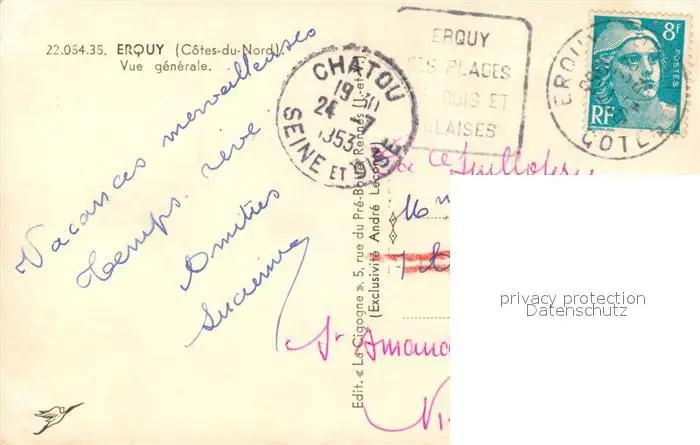 22.054.35. ERQUY (Côtes-du-Nord)
Vue générale.
Vacances merveilleuses
temps rêvé
Amitiés
CHATOU
19 30
24 -7
1953
SEINE ET OISE
ERQUY
SES PLAGES
BOIS ET
FALAISES
ERQUY
COTES
8F
POSTES
RF
Edit. « La Cigogne », 5, rue du Pré-Botté, Rennes
(Exclusivité André Leconte)
St Amand
privacy protection
Datenschutz